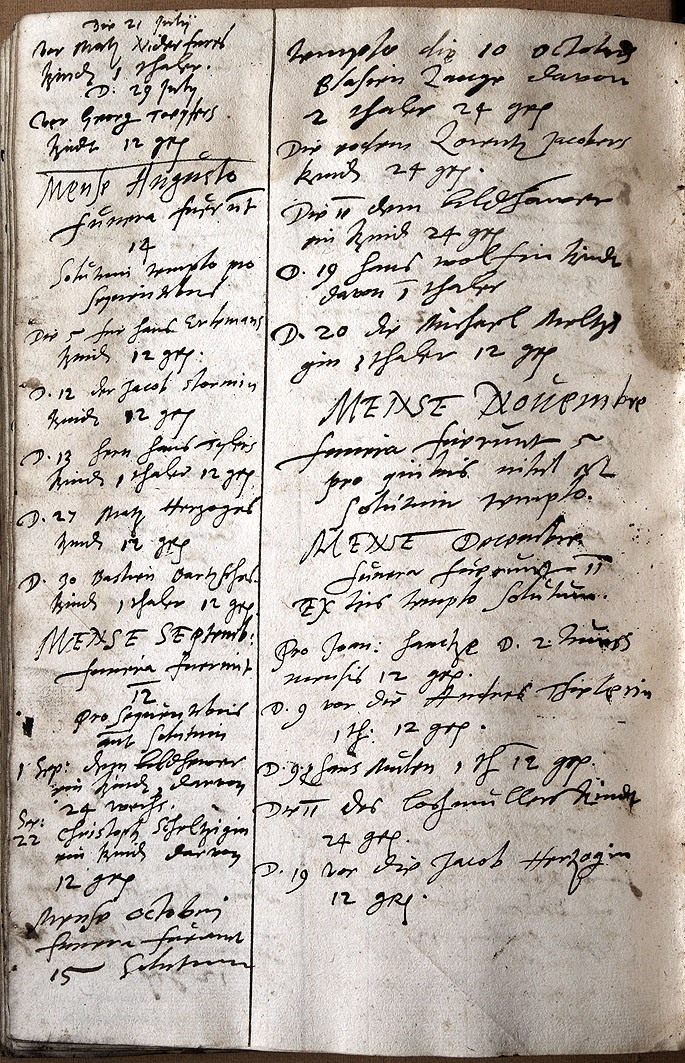 Die 21 July
Vor Matz
Kindt 1 thaler.
D. 29 July
Vor Georg Toepfers
Kindt 12 gr
Mense Augusto
funera fuerunt
14
Solutum templo pro
sequentibus
Die 5 fur Hans
Kindt 12 gr.
D. 12 der Jacob
Kindt 12 gr
D. 13 Hern Hans
Kindt 1 thaler 12 gr
D. 27 Matz Herzoges
Kindt 12 gr
D. 30 Bastien
Kindt 1 thaler 12 gr.
MENSE SEptemb:
funera fuerunt
12
Pro sequentibus
aut Solutum
1 Sep: dem bildhawer
ein Kindt, darvon
24
Sep:
22 Christoph
ein Kindt darvon
12 gr
Mense octobri
funera fuerunt
15 Solutum
templo die 10 octobris
Blasien Lange davon
2 thaler 24 gr
Die Lorentz Jacobers
Kindt 24 gr.
Die 11 dem bildhawer
ein Kindt 24 gr
D. 19 Hans Kindt
davon 1 thaler
D. 20 die Michael
gin 3 thaler 12 gr
MENSE Nouembre
funera fuerunt 5
pro quibus nihil est
Solutum templo.
MENSE Decembre
funera fuerunt 11
EX his templo Solutum.
Pro Joan: D. 2 huius
mensis 12 gr.
D. 9 vor die Andres
1 th: 12 gr.
D. 9 Hans 1 th 12 gr.
Die 11 des lochmullers Kindt
24 gr.
D. 19 vor die Jacob Herzogin
12 gr.